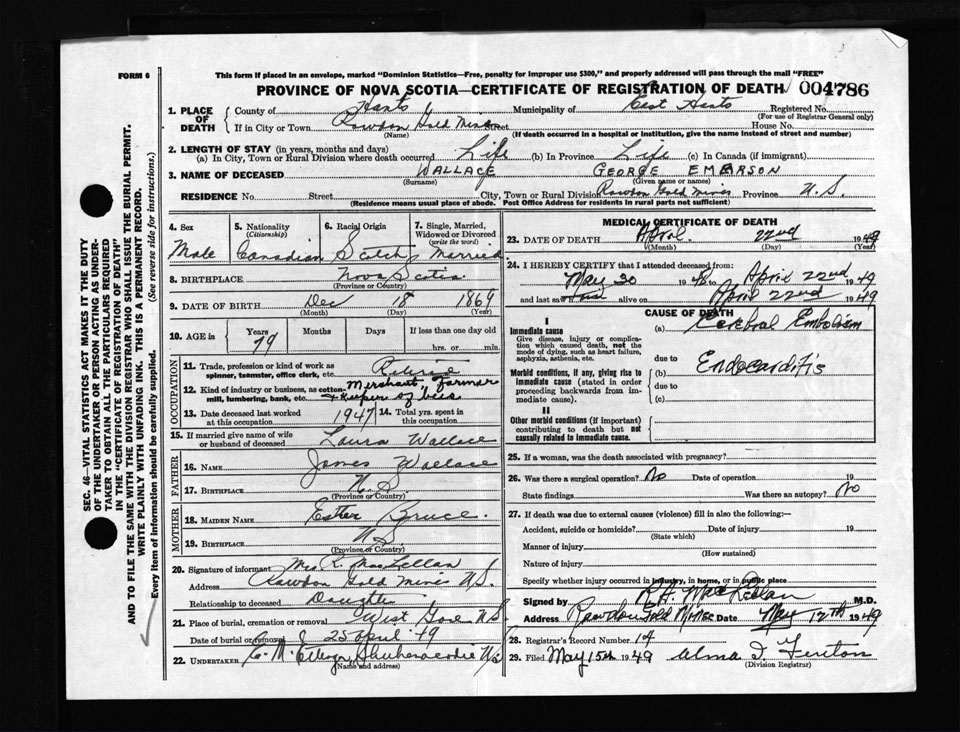 FORM 6
This form if placed in an envelope, marked "Dominion Statistics—Free, penalty for improper use $300," and properly addressed will pass through the mail "FREE"
PROVINCE OF NOVA SCOTIA—CERTIFICATE OF REGISTRATION OF DEATH 004786
SEC. 46—VITAL STATISTICS ACT MAKES IT THE DUTY
OF THE UNDERTAKER OR PERSON ACTING AS UNDER-
TAKER TO OBTAIN ALL THE PARTICULARS REQUIRED
IN THE "CERTIFICATE OF REGISTRATION OF DEATH"
AND TO FILE THE SAME WITH THE DIVISION REGISTRAR WHO SHALL ISSUE THE BURIAL PERMIT.
WRITE PLAINLY WITH UNFADING INK. THIS IS A PERMANENT RECORD.
Every item of information should be carefully supplied. (See reverse side for instructions.)
1. PLACE OF DEATH County of Hants Municipality of East Hants Registered No.
(For use of Registrar General only)
If in City or Town Rawdon Gold Mines Street House No.
(Name) (If death occurred in a hospital or institution, give the name instead of street and number)
2. LENGTH OF STAY (in years, months and days)
(a) In City, Town or Rural Division where death occurred Life (b) In Province Life (c) In Canada (if immigrant)
3. NAME OF DECEASED WALLACE GEORGE EMERSON
(Surname) (Given name or names)
RESIDENCE No. Street City, Town or Rural Division Rawdon Gold Mines Province N.S.
(Residence means usual place of abode. Post Office Address for residents in rural parts not sufficient)
4. Sex Male
5. Nationality (Citizenship) Canadian
6. Racial Origin Scotch
7. Single, Married, Widowed or Divorced (write the word) Married
8. BIRTHPLACE Nova Scotia
(Province or Country)
9. DATE OF BIRTH Dec 18 1869
(Month) (Day) (Year)
10. AGE in Years 79 Months Days If less than one day old
hrs. or min.
OCCUPATION
11. Trade, profession or kind of work as
spinner, teamster, office clerk, etc. Retired
12. Kind of industry or business, as cotton- Merchant, farmer
mill, lumbering, bank, etc. & keeper of bees
13. Date deceased last worked at this occupation 1947 14. Total yrs. spent in this occupation
15. If married give name of wife
or husband of deceased Laura Wallace
FATHER
16. NAME James Wallace
17. BIRTHPLACE N.S.
(Province or Country)
MOTHER
18. MAIDEN NAME Esther Bruce.
19. BIRTHPLACE N.S.
(Province or Country)
20. Signature of informant Mrs R. MacLellan
Address Rawdon Gold Mines N.S.
Relationship to deceased Daughter
21. Place of burial, cremation or removal West Gore N.S
Date of burial or removal 25 April '49
22. UNDERTAKER C. M.
(Name and address)
MEDICAL CERTIFICATE OF DEATH
23. DATE OF DEATH April 22nd 1949
(Month) (Day) (Year)
24. I HEREBY CERTIFY that I attended deceased from:
May 30 1948 to April 22nd 1949
and last saw him alive on April 22nd 1949
CAUSE OF DEATH
I
Immediate cause (a) Cerebral Embolism
Give disease, injury or complica-
tion which caused death, not the
mode of dying, such as heart failure,
asphyxia, asthenia, etc.
due to Endocarditis
Morbid conditions, if any, giving rise to
immediate cause (stated in order
proceeding backwards from im-
mediate cause).
(b)
due to
(c)
II
Other morbid conditions (if important)
contributing to death but not
causally related to immediate cause.
25. If a woman, was the death associated with pregnancy?
26. Was there a surgical operation? No Date of operation 19
State findings Was there an autopsy? No
27. If death was due to external causes (violence) fill in also the following:—
Accident, suicide or homicide? Date of injury 19
(State which)
Manner of injury
(How sustained)
Nature of injury
Specify whether injury occurred in industry, in home, or in public place
Signed by R.H. MacLellan M.D.
Address Rawdon Gold Mines Date May 12TH 1949
28. Registrar's Record Number 14
29. Filed May 15th 1949 Alma
(Division Registrar)